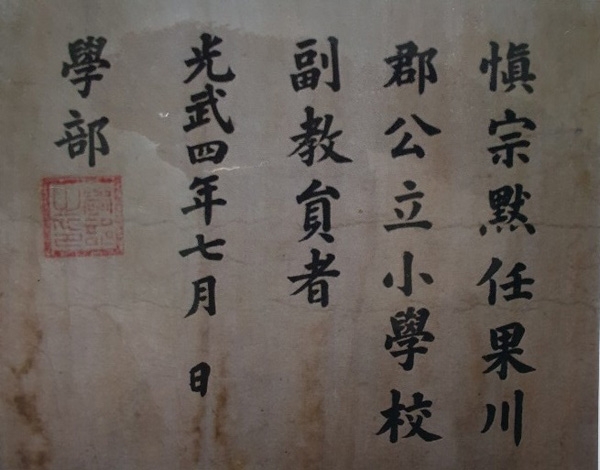 愼宗默任果川
郡公立小學校
副教員者
光武四年七月 日
學部